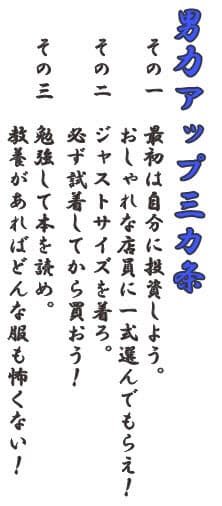 男力アップ三カ条
その一 最初は自分に投資しよう。
おしゃれな店員に一式選んでもらえ!
その二 ジャストサイズを着ろ。
必ず試着してから買おう!
その三 勉強して本を読め。
教養があればどんな服も怖くない!